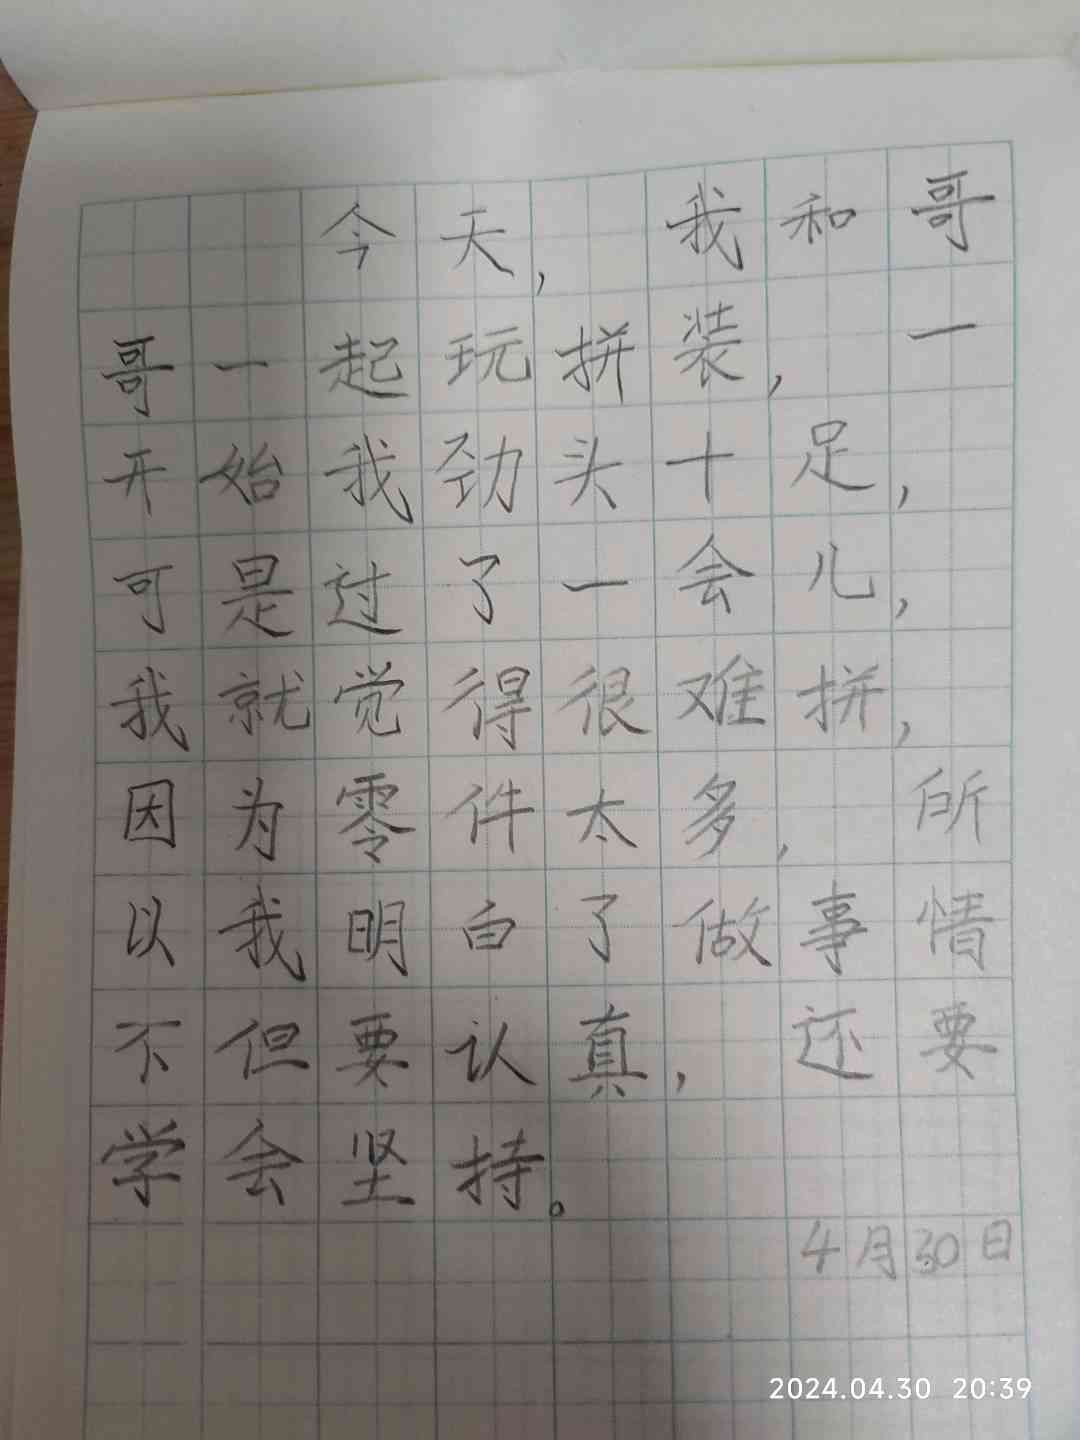 今天，我和哥
哥一起玩拼装，一
开始我劲头十足，
可是过了一会儿，
我就觉得很难拼，
因为零件太多，所
以我明白了做事情
不但要认真，还要
学会坚持。
4月30日
2024.04.30 20:39